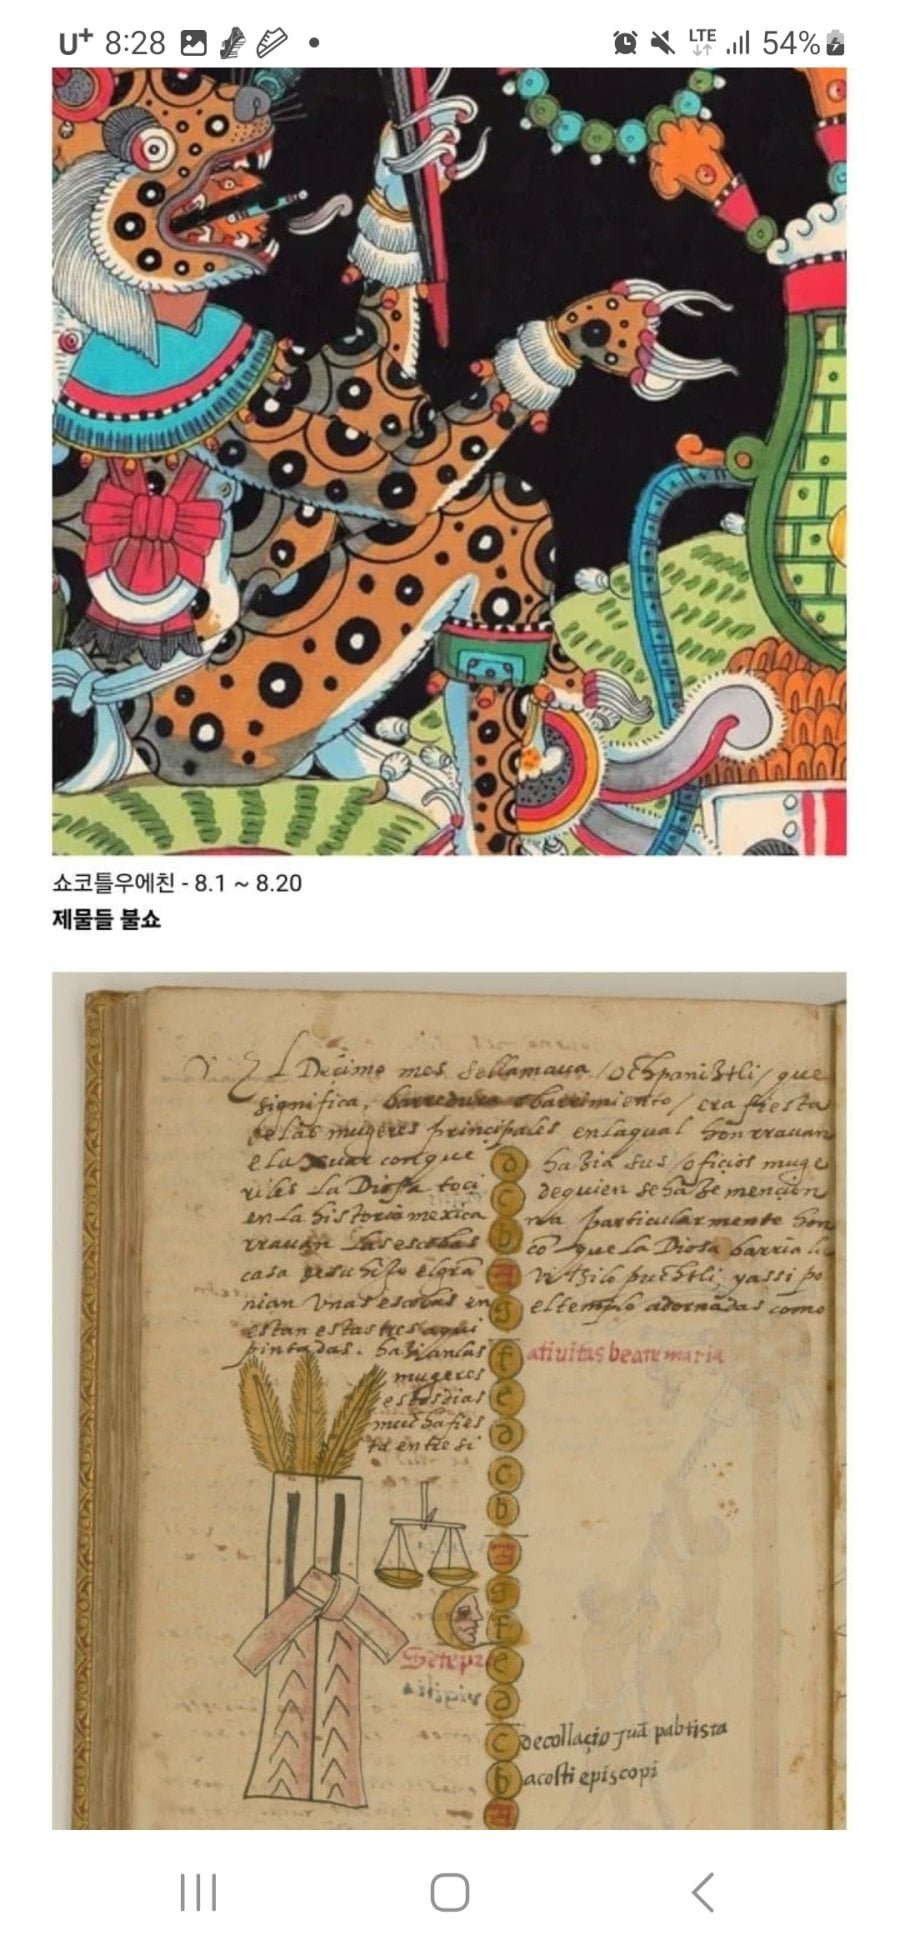 U+ 8:28 LTE 54%
쇼코틀우에친 - 8.1 ~ 8.20
제물들 불쇼
El Deçimo mes sellamaua / ochpaniztli / que
significa, barredura obarrimiento / era fiesta
delas mugeres principales enlaqual honrrauan
el conque d hazia sus / oficios muge
riles La Diosa toçi c dequien sehaze mençion
en la historia mexica b na particularmente hon
rrauan las escobas cō que la Diosa barria la
casa desu hijo elgrā A vitzilopuchtli, yassi po
nian vnas escobas en g eltemplo adornadas como
estan estas tres aqui
pintadas. hazian las f ativitas beate maria
mugeres e
estos dias d
mucha fies
ta entre si
c
b
A
g
f
e
d
c decollaçio juā pabtista
b acosti episcopi
A